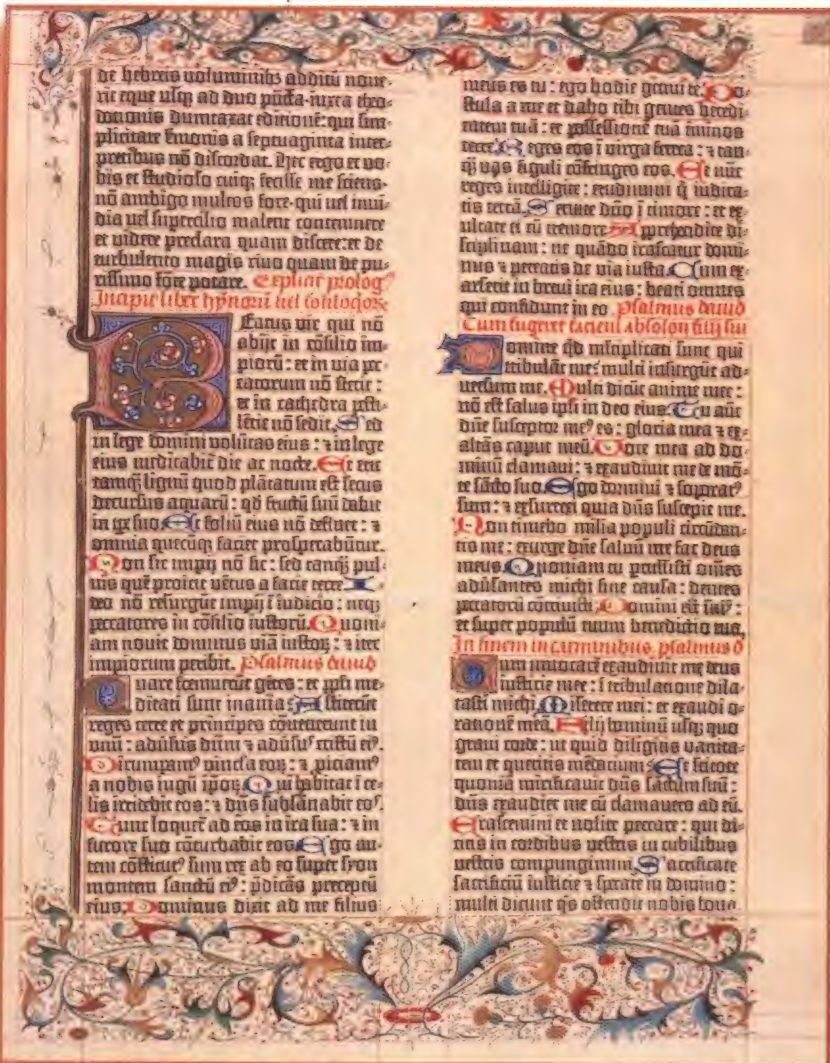 de hebreis uoluminibꝫ additũ noue-
rit eque usqꝫ ad duo pũcta· iuxta theo-
docionis dumtaxat editionẽ: qui sim-
plicitate sermonis a septuaginta inter-
pretibus nõ discordat. Hec ergo et uo-
bis et studioso cuiqꝫ fecisse me sciens·
nõ ambigo multos fore· qui uel inui-
dia uel supercilio malent contemnere
et videre preclara quam discere: et de
turbulento magis riuo quam de pu-
rissimo fõte potare. Explicit prologꝰ
Incipit liber hymnorũ uel soliloqiorꝫ
Beatus vir qui nõ
abijt in cõsilio im-
piorũ: et in via pec-
catorum nõ stetit:
et in cathedra pesti-
lẽtie nõ sedit. Sed
in lege domini volũtas eius: ⁊ in lege
eius meditabit᷑ die ac nocte. Et erit
tamqꝫ lignũ quod plãtatum est secus
decursus aquarũ: qd̃ fructũ suũ dabit
in tꝑe suo Et foliũ eius nõ defluet: ⁊
omnia quecũqꝫ faciet prosperabũtur.
Non sic impij nõ sic: sed tanqꝫ pul-
uis quẽ proicit vẽtus a facie terre I-
deo nõ resurgũt impij ĩ iudicio: neqꝫ
peccatores in cõsilio iustorũ. Quoni-
am nouit dominus viã iustoꝝ: ⁊ iter
impiorum peribit. Psalmus dauid
Quare fremuerũt gẽtes: et ppl̃i me-
ditati sunt inania: Astiterũt
reges terre et principes cõuenerunt in
unũ: aduersus dñm ⁊ adũsus cristũ eiꝰ.
Dirumpamꝰ vincla eoꝝ: ⁊ ꝓiciamꝰ
a nobis iugũ ipoꝝ. Qui habitat ĩ ce-
lis irridebit eos: ⁊ dñs subsãnabit eos.
Tunc loquet᷑ ad eos in ira sua: ⁊ in
furore suo cõturbabit eos. Ego au-
tem cõstitutꝰ sum rex ab eo super syon
montem sanctũ eiꝰ: p̃dicãs preceptũ
eius. Dominus dixit ad me filius
meus es tu: ego hodie genui te. Po-
stula a me et dabo tibi gentes heredi-
tatem tuã: et possessionẽ tuã ẽminos
terre. Reges eos ĩ virga ferrea: ⁊ tan-
qꝫ vas figuli cõfringes eos. Et nũc
reges intelligite: erudimini q̃ iudica-
tis terrã. Seruite dño ĩ timore: et ex-
ultate ei cũ tremore. Apprehendite di-
sciplinam: ne quãdo irascatur domi-
nus ⁊ pereatis de via iusta. Cum ex-
arserit in breui ira eius: beati omnes
qui confidunt in eo. Psalmus dauid
Cum fugeret a faciẽ absolon filij sui
Domine qd̃ multiplicati sunt qui
tribulãt me: multi insurgũt ad-
uersum me. Multi dicũt anime mee:
nõ est salus ipsi in deo eius. Tu aũt
dñe susceptor meꝰ es: gloria mea ⁊ ex-
altãs caput meũ. Voce mea ad do-
minũ clamaui: ⁊ exaudiuit me de mõ-
te sãcto suo. Ego dormiui ⁊ soporatꝰ
sum: ⁊ exsurrexi quia dñs suscepit me.
Non timebo milia populi circũdan-
tis me: exurge dñe saluũ me fac deus
meus. Quoniam tu percussisti oẽs
adũsantes michi sine causa: dentes
peccatorũ cõtriuisti. Domini est salꝰ:
et super populũ tuum benedictio tua.
In finem in carminibus. psalmus d
Cum inuocarẽ exaudiuit me deus
iusticie mee: ĩ tribulatione dila-
tasti michi. Miserere mei: et exaudi o-
rationẽ meã. Filij hominũ usqꝫ quo
graui corde: ut quid diligitis vanita-
tem et queritis mẽdacium: Et scitote
quoniã mirificauit dñs sãctum suũ:
dñs exaudiet me cũ clamauero ad eũ.
Irascemini et nolite peccare: qui di-
citis in cordibus vestris in cubilibus
vestris compungimini. Sacrificate
sacrificiũ iusticie ⁊ sperate in domino:
multi dicunt q̃s ostendit nobis bona.